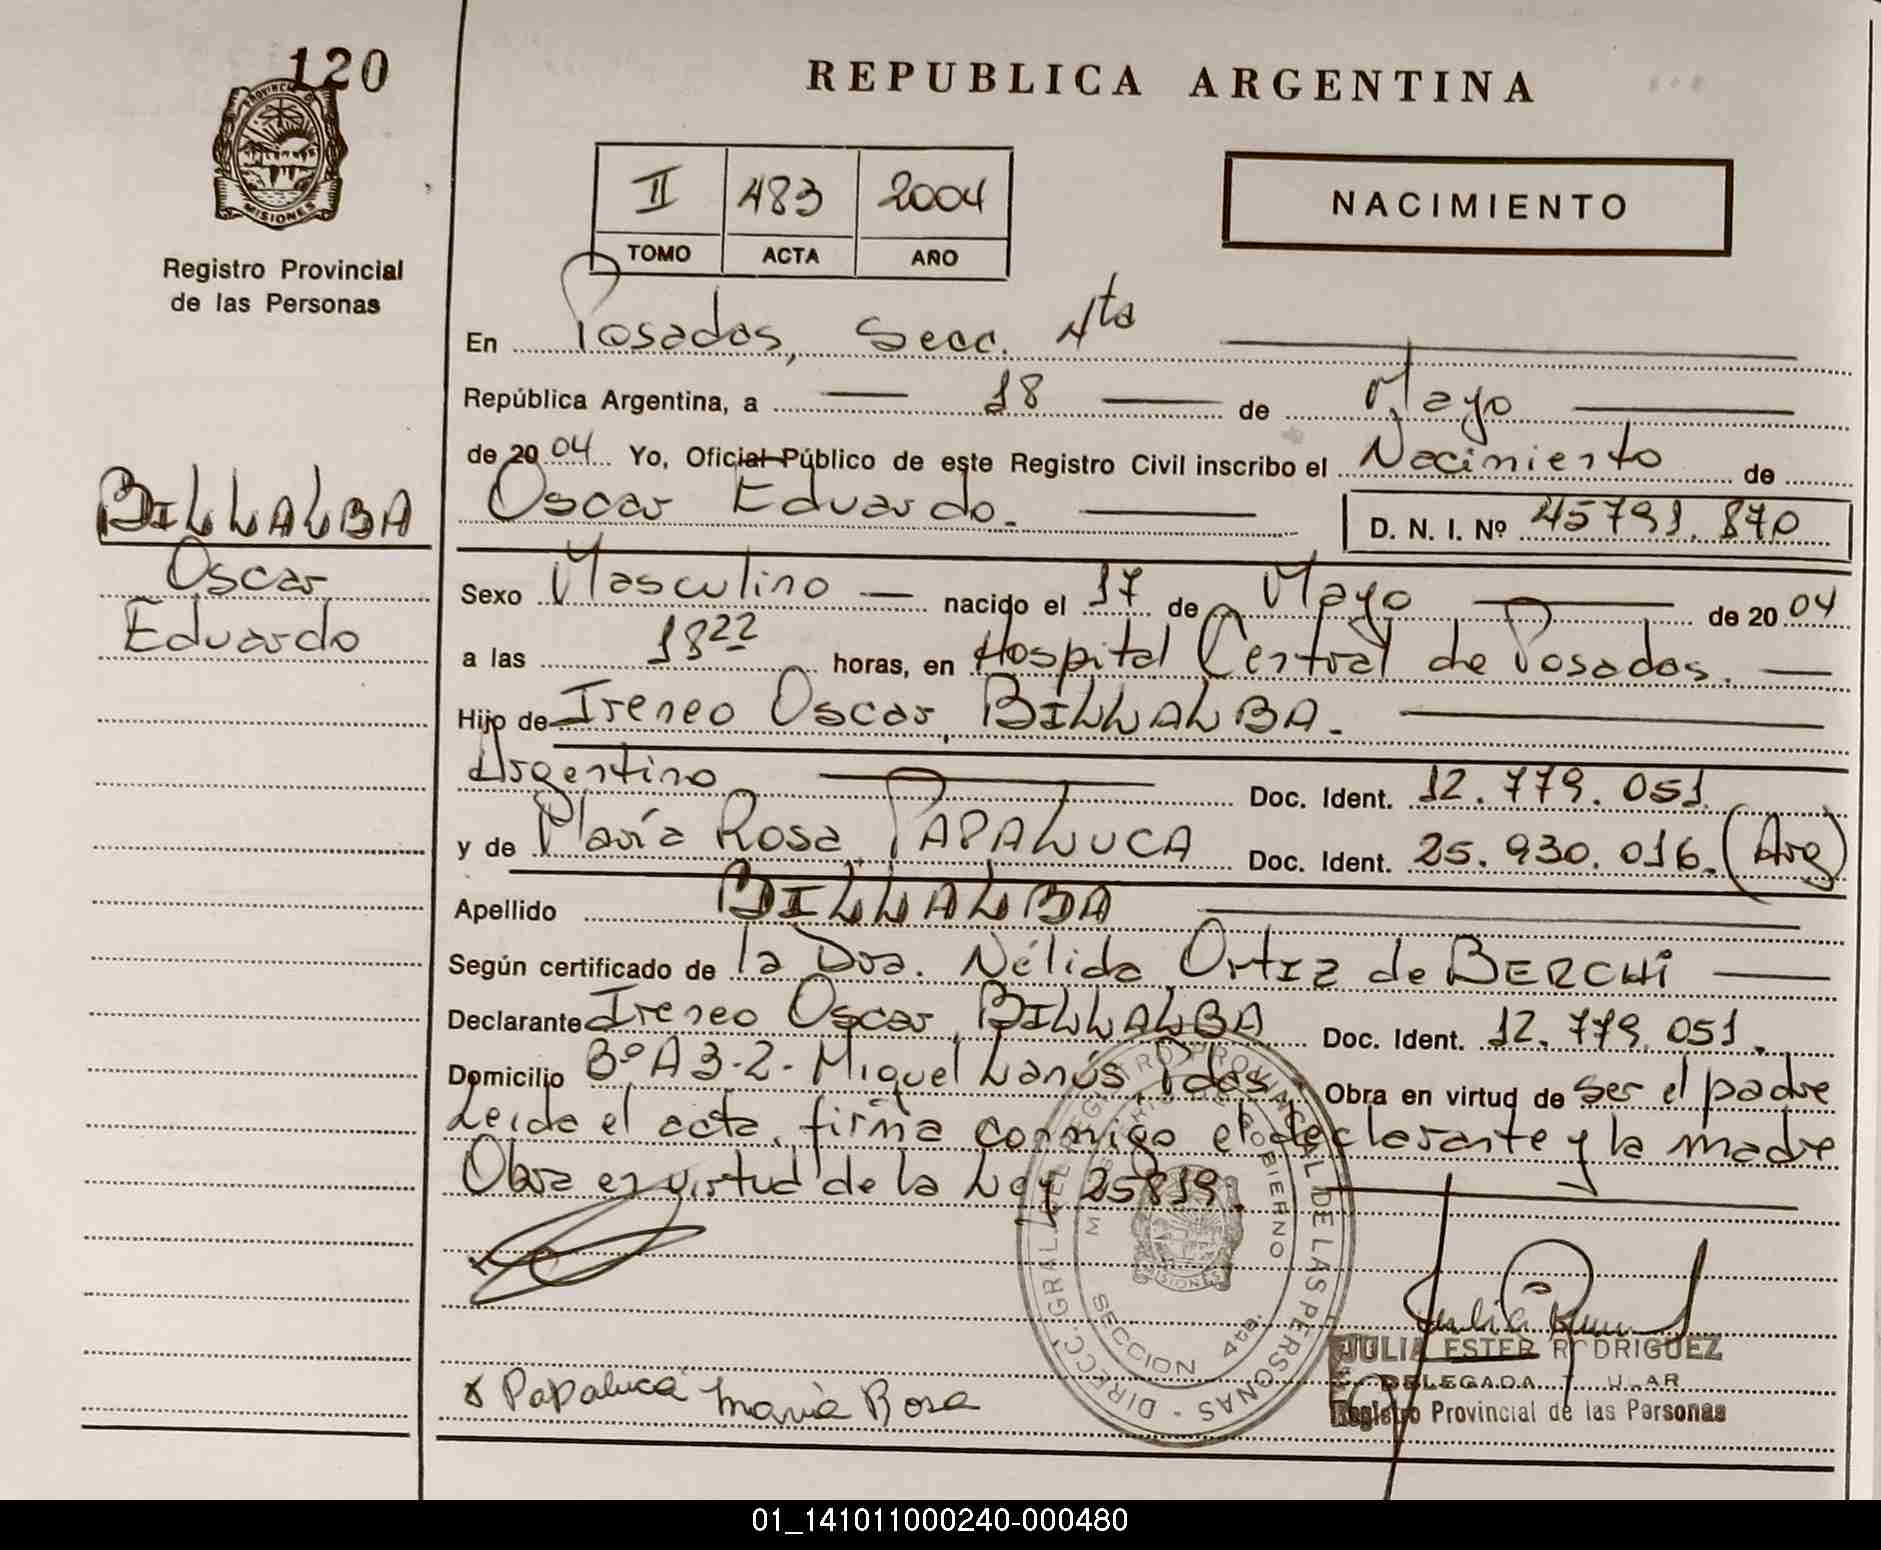 120
PROVINCIA DE
MISIONES
Registro Provincial
de las Personas
BILLALBA
Oscar
Eduardo
REPUBLICA ARGENTINA
II 483 2004
TOMO ACTA AÑO
NACIMIENTO
En Posadas, Secc. 4ta
República Argentina, a 18 de Mayo
de 2004 Yo, Oficial Público de este Registro Civil inscribo el Nacimiento de
Oscar Eduardo. D. N. I. Nº 45791.870
Sexo Masculino nacido el 17 de Mayo de 2004
a las 18 22 horas, en Hospital Central de Posadas.
Hijo de Ireneo Oscar BILLALBA.
Argentino Doc. Ident. 12.779.051
y de María Rosa PAPALUCA Doc. Ident. 25.930.016. (Arg)
Apellido BILLALBA
Según certificado de la Dra. Nélida Ortiz de BERCHI
Declarante Ireneo Oscar BILLALBA Doc. Ident. 12.779.051.
Domicilio Bº A3-2- Miguel Lanús, Pdas Obra en virtud de ser el padre
Leida el acta, firma conmigo el declarante y la madre
Obra en virtud de la Ley 25819.
DIRECC. GRAL. DEL REGISTRO PROVINCIAL DE LAS PERSONAS -
MINISTERIO DE GOBIERNO
MISIONES
SECCION 4ta.
JULIA ESTER RODRIGUEZ
DELEGADA TITULAR
Registro Provincial de las Personas
x Papaluca maria Rosa
01_141011000240-000480